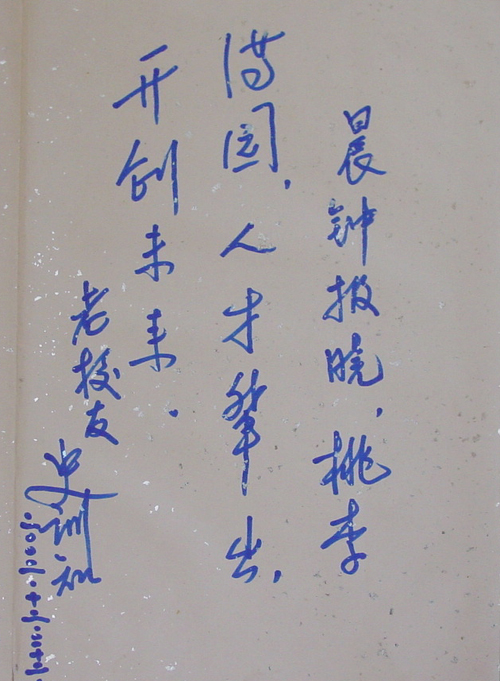 晨钟报晓，桃李
满园，人才辈出，
开创未来.
老校友
史训知